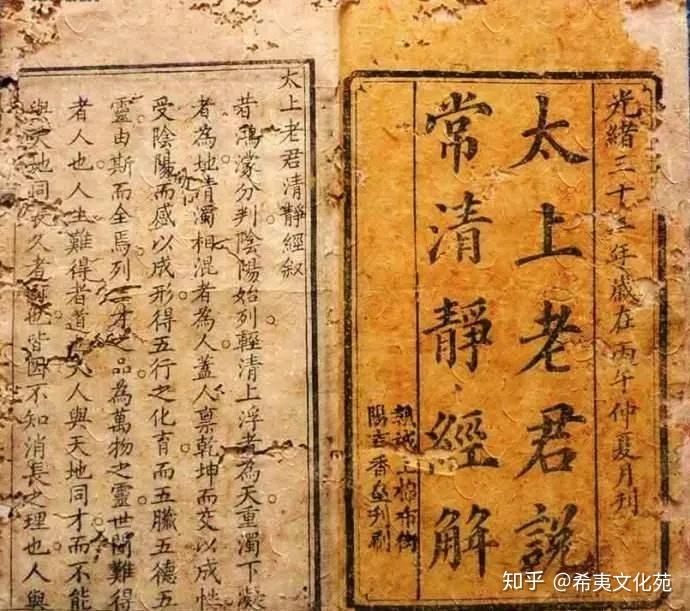 光緒三十年歲在丙午仲夏月刊
太上老君說
常清靜經解
上棉布街
香刊刷
太上老君清靜經叙
昔鴻濛分判陰陽始列輕清上浮者為天重濁下凝
者為地清濁相混者為人蓋人稟乾坤而交以成性
受陰陽而感以成形得五行之化育而五臟五德五
靈由斯而全焉列才之品為萬物之靈世間難得
者人也人生難得者道人與天地同才而不能
與天地同長久者何也皆因不知消長之理也人與
知乎 @希夷文化苑